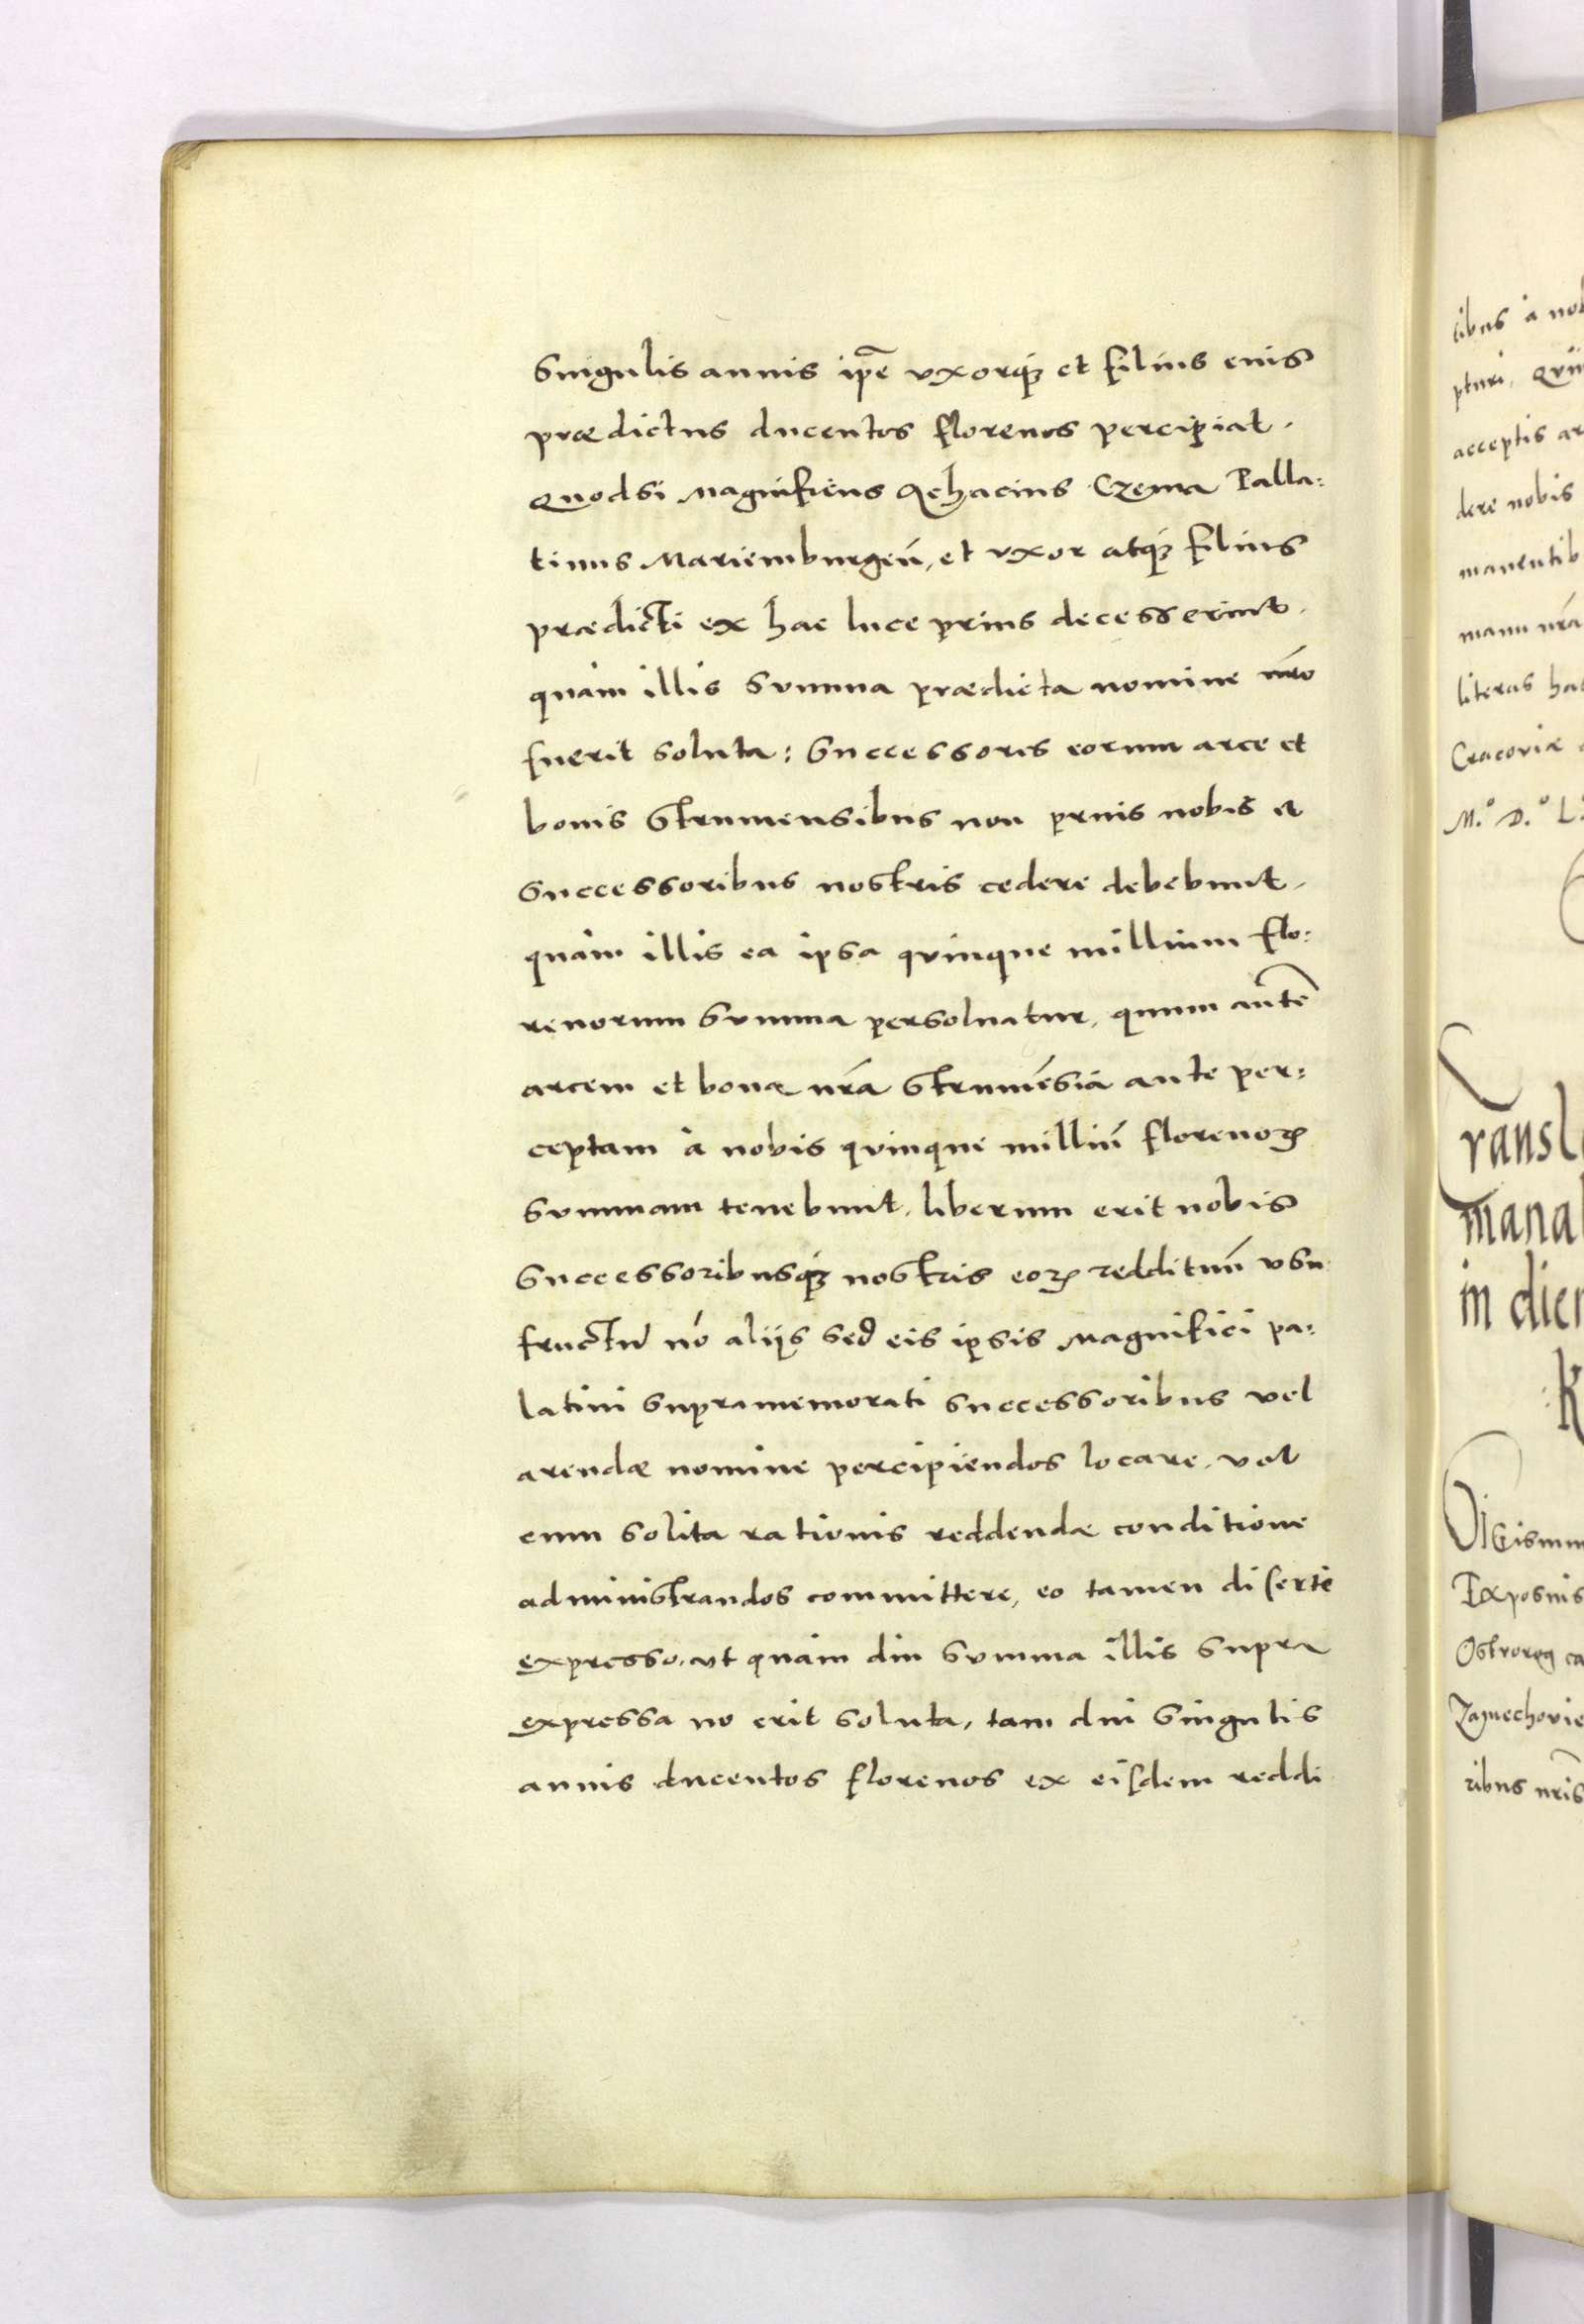 Singulis annis ip̃e vxorq́ꝫ et filius eius
prædictus ducentos florenos percipiat.
Quodsi Magnificus Achacius Czema Palla:
tinus Mariemburgeñ, et vxor atq́ꝫ filius
prædicti ex hac luce prius decesserint.
quàm illis summa prædicta nomine nr̃o
fuerit soluta: Successores eorum arce et
bonis Strumensibus non prius nobis et
Successoribus nostris cedere debebunt,
quàm illis ea ipsa quinque millium flo:
renorum summa persoluatur, quum autẽ
arcem et bona nr̃a Strumẽsia ante per:
ceptam à nobis quinque milliũ florenoꝝ
summam tenebunt, liberum erit nobis
Successoribusq́ꝫ nostris eoꝝ reddituũ vsu
fructũ nõ alijs sed eis ipsis Magnifici pa:
latini supramemorati successoribus vel
arendæ nomine percipiendos locare, vel
cum solita rationis reddendæ conditione
administrandos committere, eo tamen diserte
expresso, vt quàm diu summa illis supra
expressa no erit soluta, tam diu singulis
annis ducentos florenos ex eisdem reddi
tibus à nob
pturi, Qui
acceptis ar
dere nobis
manentib
manu nr̃a
literas ha
Cracoviæ
M.º D.º L
Transl
mana
in dier
K
Sigismu
Exposuis
Ostrorog ca
ribus nr̃is